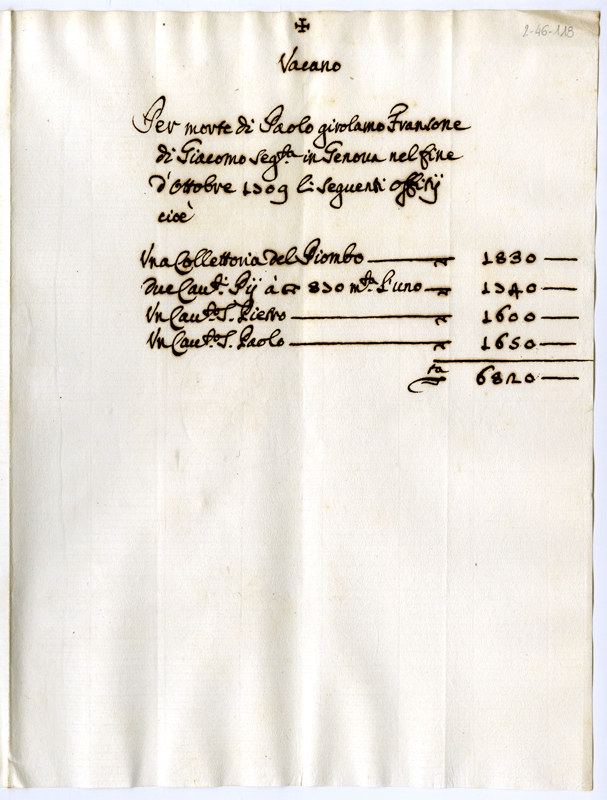 ✠
2-46-118
Vacano
Per morte di Paolo girolamo Fransone
di Giacomo seg.ta in Genova nel fine
d'ottobre 1709 li seguenti offitij
cioè
Una Collettoria del Piombo — 1830 —
Due Cau.ri Pij à 870 m.ta l'uno — 1740 —
Un Cau.to S. Pietro — 1600 —
Un Cau.to S. Paolo — 1650 —
6820 —